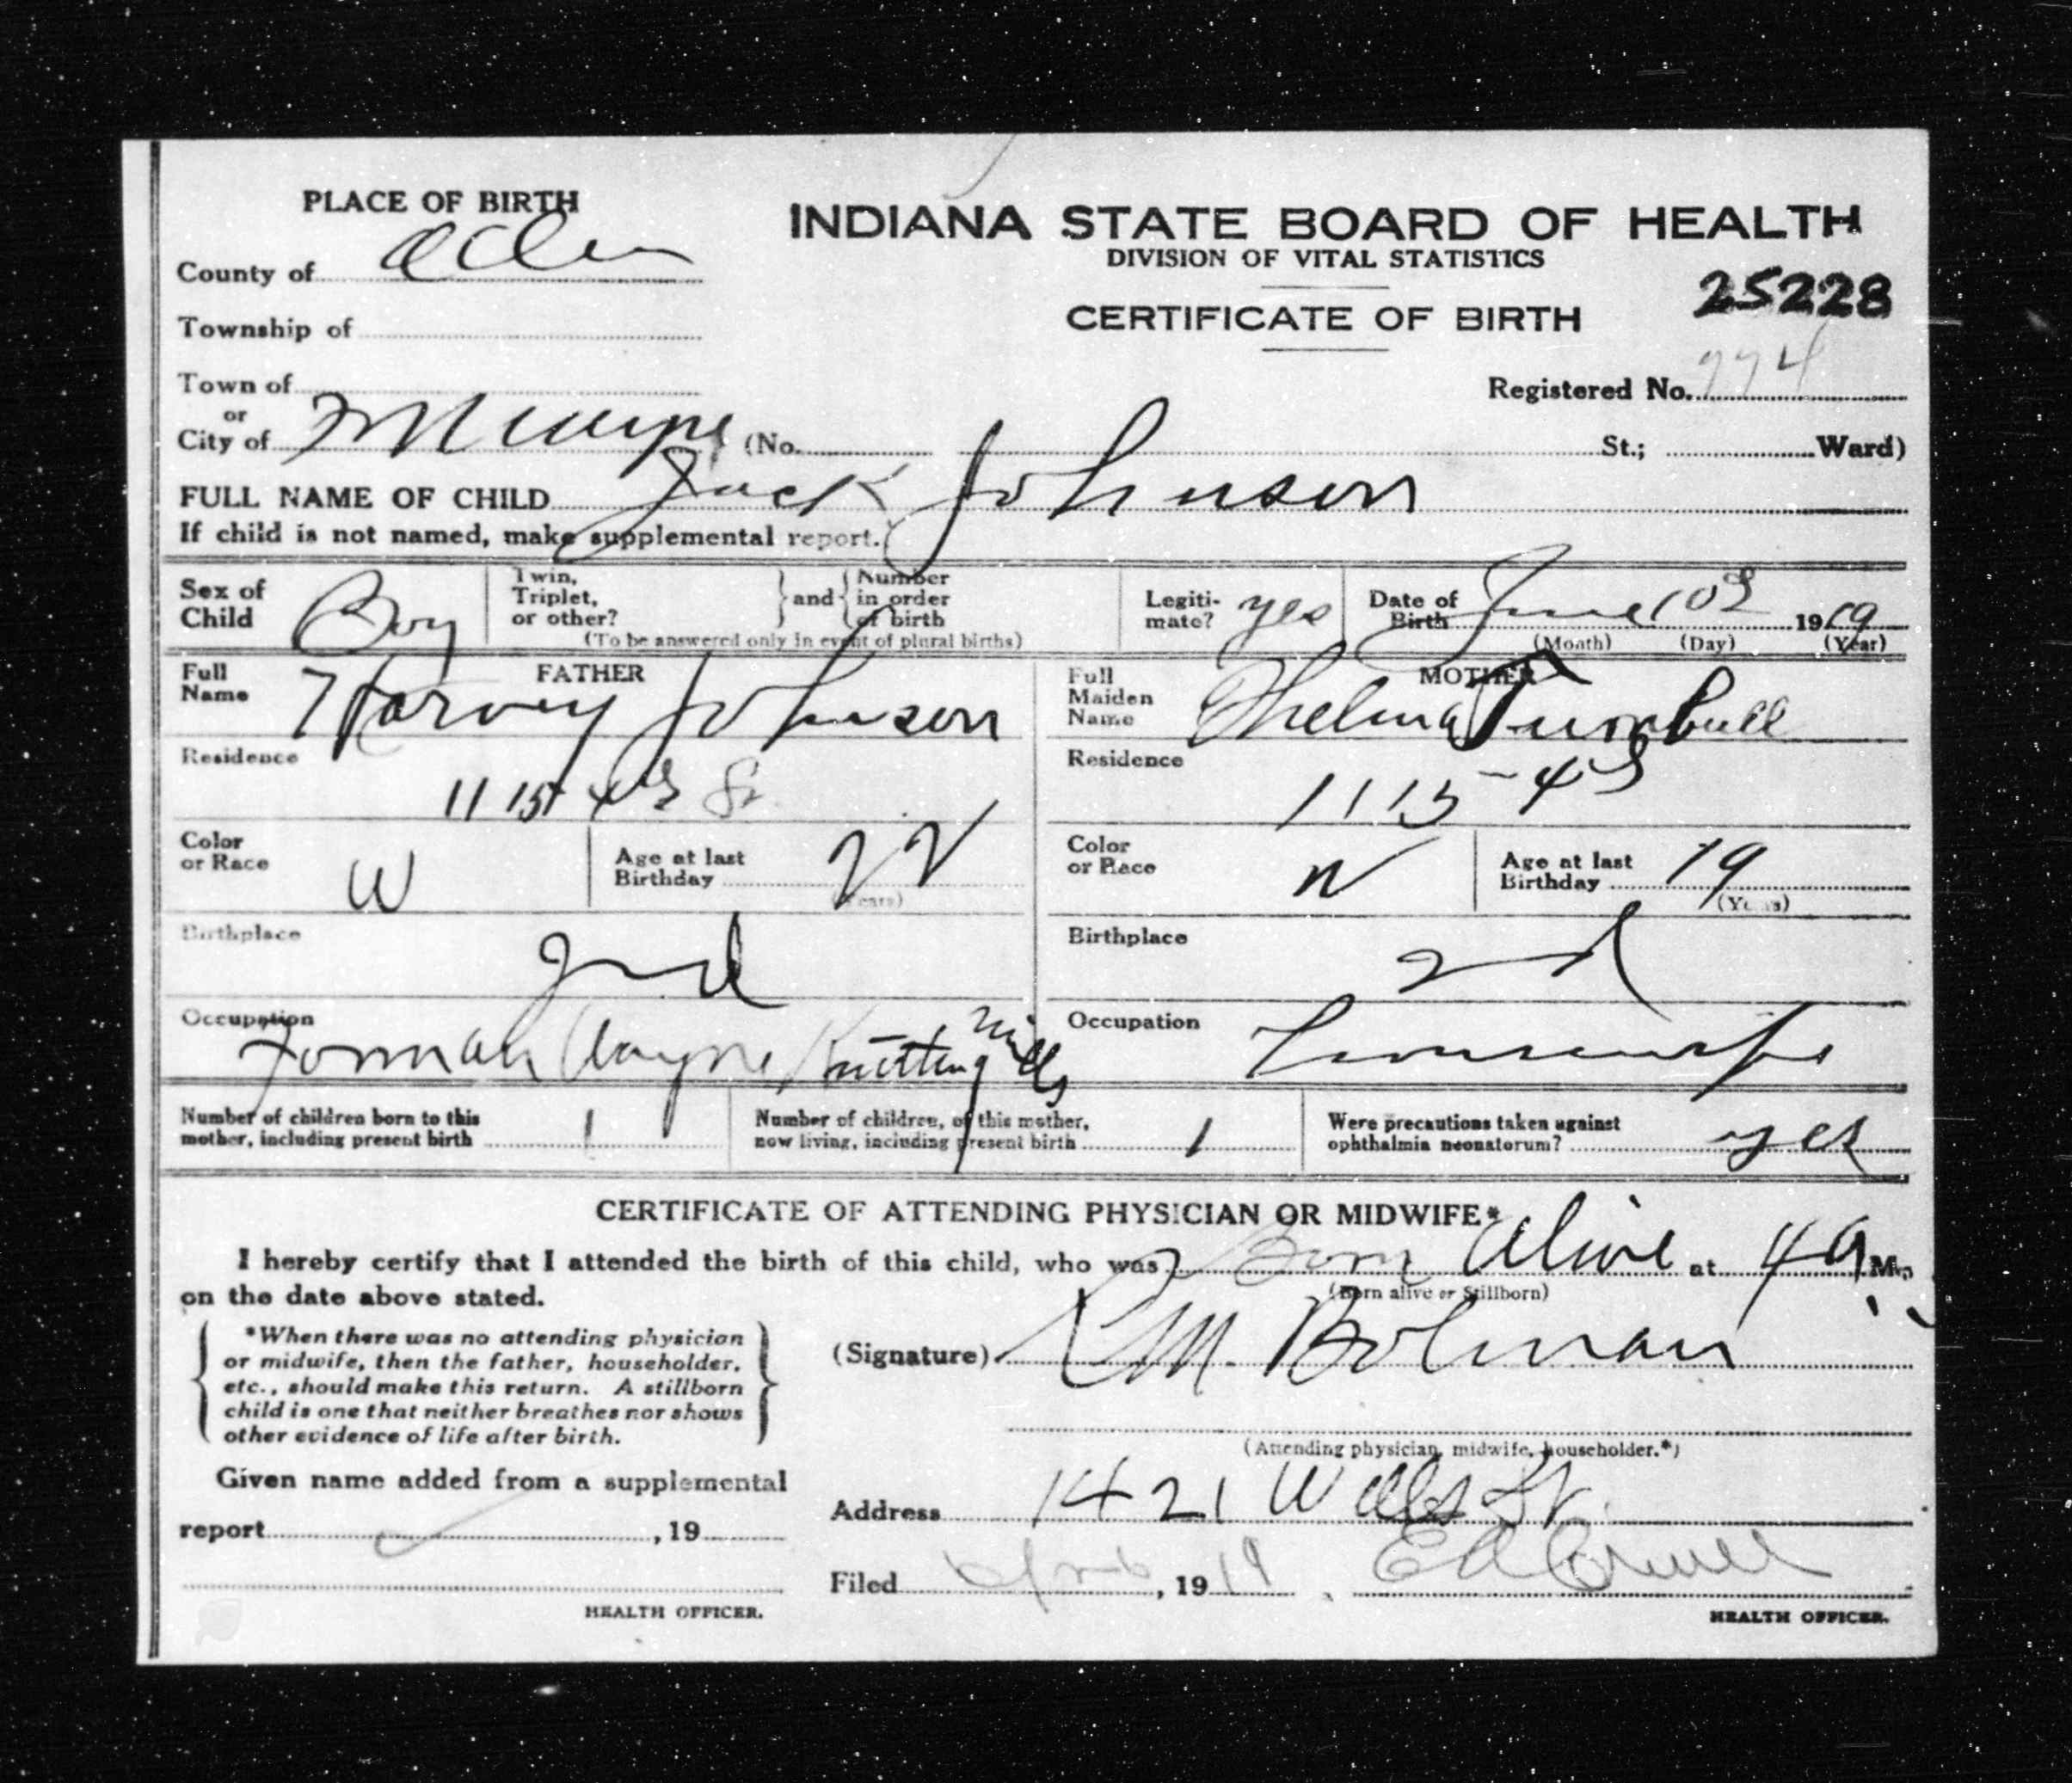 PLACE OF BIRTH
INDIANA STATE BOARD OF HEALTH
DIVISION OF VITAL STATISTICS
County of Allen
25228
CERTIFICATE OF BIRTH
Township of
Town of
Registered No. 774
or
City of (No. St.; Ward)
FULL NAME OF CHILD Jack Johnson
If child is not named, make supplemental report.
Sex of Child Boy
Twin, Triplet, or other? and Number in order of birth
(To be answered only in event of plural births)
Legitimate? yes
Date of Birth June 10 1919
(Month) (Day) (Year)
FATHER
Full Name Harvey Johnson
MOTHER
Full Maiden Name Thelma Turnbull
Residence 1115 4th St.
Residence 1115-4th
Color or Race W
Age at last Birthday 22
(Years)
Color or Race W
Age at last Birthday 19
(Years)
Birthplace Ind
Birthplace Ind
Occupation Forman Wayne Knitting Mills
Occupation Housewife
Number of children born to this mother, including present birth 1
Number of children, of this mother, now living, including present birth 1
Were precautions taken against ophthalmia neonatorum? yes
CERTIFICATE OF ATTENDING PHYSICIAN OR MIDWIFE*
I hereby certify that I attended the birth of this child, who was Born Alive at 4 A M.,
(Born alive or Stillborn)
on the date above stated.
*When there was no attending physician
or midwife, then the father, householder,
etc., should make this return. A stillborn
child is one that neither breathes nor shows
other evidence of life after birth.
(Signature) Bolman
(Attending physician, midwife, householder.*)
Given name added from a supplemental
report , 19
Address 1421 Wells St.
Filed , 1919
HEALTH OFFICER.
HEALTH OFFICER.